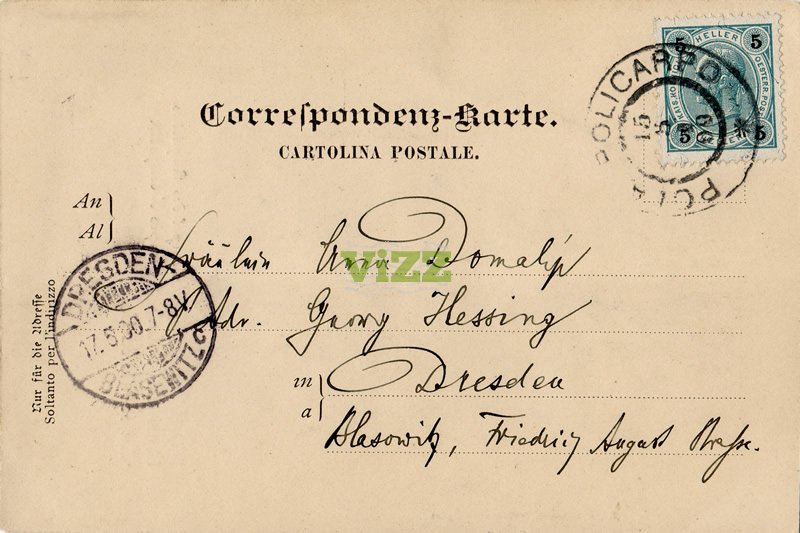 Correspondenz-Karte.
CARTOLINA POSTALE.
5 HELLER 5
5 5
S. POLICARPO
15 5 00
POLA
An
Al
Fräulein Anna Domalip
Adr. Georg Hessing
in
a
Dresden
Blasewitz, Friedrich August Strasse.
DRESDEN-
17.5.00.7-8V.
BLASEWITZ c
Nur für die Adresse
Soltanto per l'indirizzo
vizz